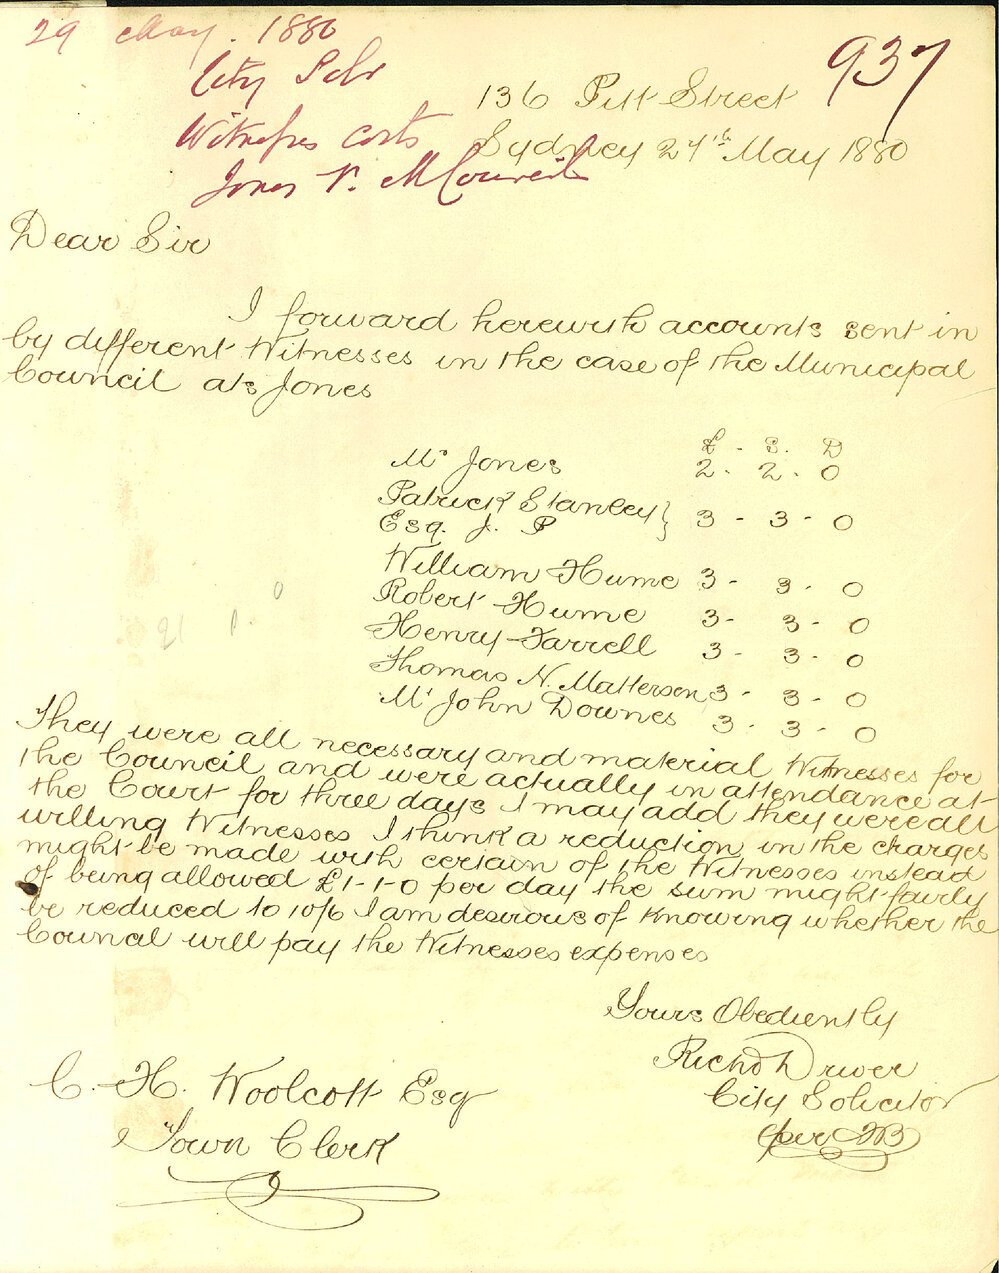 29 May. 1880
937
City Solr
136 Pitt Street
Witness costs
Sydney 27th May 1880
Jones v. M Council
Dear Sir
I forward herewith accounts sent in
by different Witnesses in the case of the Municipal
Council ats Jones
£ - S. D
Mr Jones 2 - 2 - 0
Patrick Stanley }
Esq. J. P 3 - 3 - 0
William Hume 3 - 3 - 0
Robert Hume 3 - 3 - 0
Henry Farrell 3 - 3 - 0
Thomas N. Matterson 3 - 3 - 0
Mr John Downes 3 - 3 - 0
They were all necessary and material Witnesses for
the Council and were actually in attendance at
the Court for three days I may add they were all
willing Witnesses I think a reduction in the charges
might be made with certain of the Witnesses instead
of being allowed £1-1-0 per day the sum might fairly
be reduced to 10/6 I am desirous of knowing whether the
Council will pay the Witnesses expenses
Yours Obediently
Richd Driver
City Solicitor
per
C. H. Woolcott Esq
Town Clerk